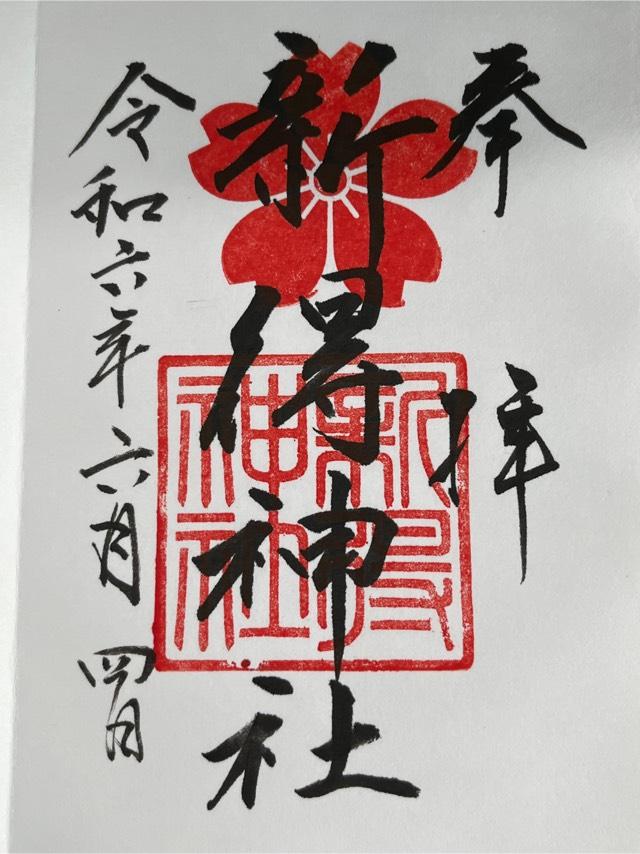 奉拝
新得神社
新得神社
令和六年六月四日